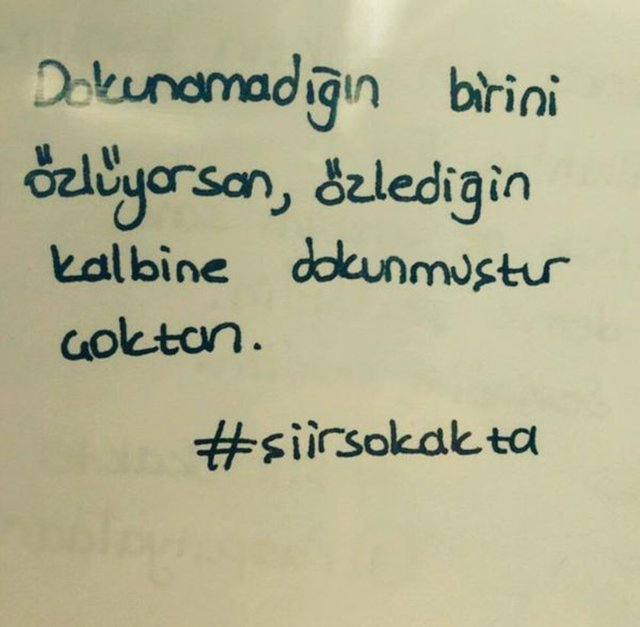 Dokunamadığın birini
özlüyorsan, özlediğin
kalbine dokunmuştur
çoktan.
#şiirsokakta